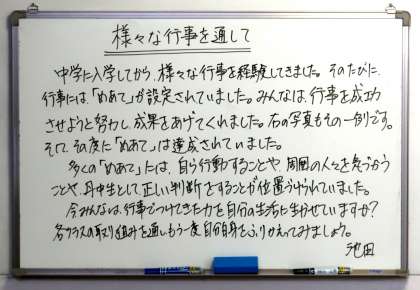 様々な行事を通して
中学に入学してから、様々な行事を経験してきました。そのたびに、
行事には、「めあて」が設定されていました。みんなは、行事を成功
させようと努力し、成果をあげてくれました。右の写真もその一例です。
そして、その度に「めあて」は達成されていました。
多くの「めあて」には、自ら行動することや、周囲の人々を気づかう
ことや、中生として正しい判断をすることが位置づけられていました。
今みんなは、行事でつけてきた力を自分の生活に生かせていますか?
各クラスの取り組みを通し、もう一度自分自身をふりかえってみましょう。
池田